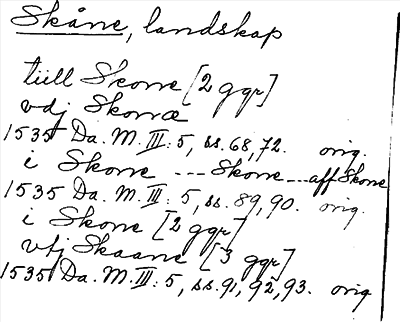 Skåne, landskap
tiill Skone [2 ggr]
vdj Skonæ
1535 Da. M. III: 5, ss. 68, 72. orig.
i Skone --- Skone --- aff Skone
1535 Da. M. III: 5, ss. 89, 90. orig.
i Skone [2 ggr]
vtj Skaane [3 ggr]
1535 Da. M. III: 5, ss. 91, 92, 93. orig